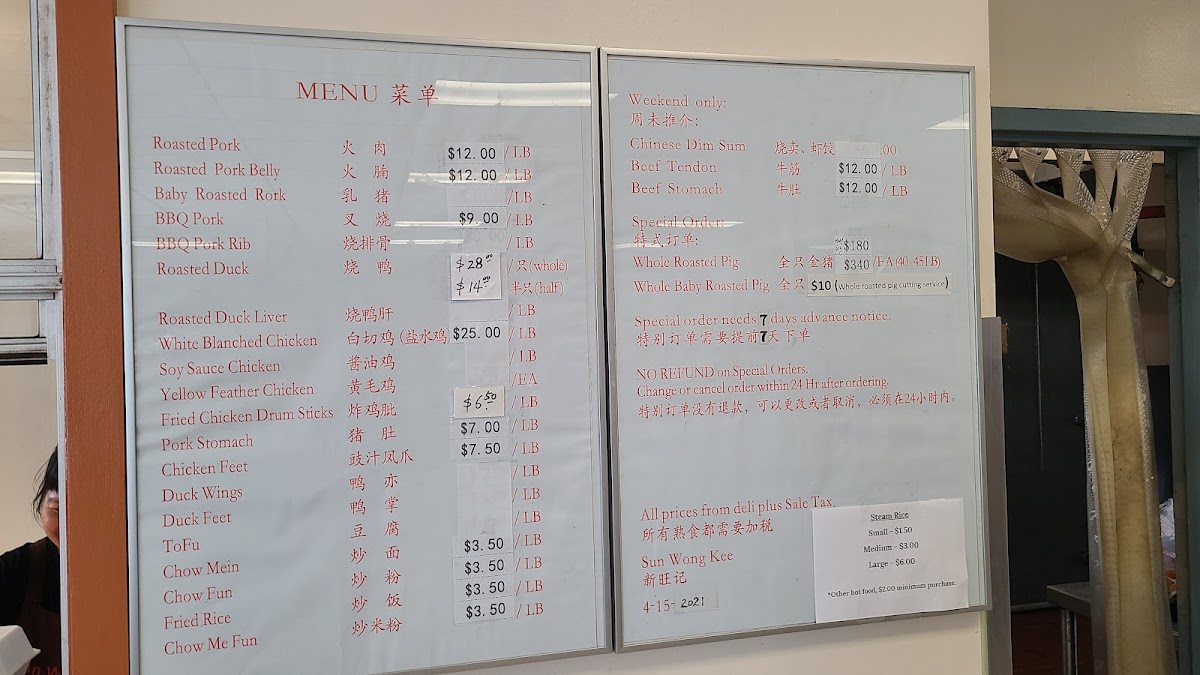 MENU 菜单
Roasted Pork 火 肉 $12.00 / LB
Roasted Pork Belly 火 腩 $12.00 / LB
Baby Roasted Rork 乳 猪 / LB
BBQ Pork 叉 烧 $9.00 / LB
BBQ Pork Rib 烧排骨 / LB
Roasted Duck 烧 鸭 $28.00 / 只(whole)
$14.00 半只(half)
Roasted Duck Liver 烧鸭肝 / LB
White Blanched Chicken 白切鸡 (盐水鸡 $25.00 / LB
Soy Sauce Chicken 酱油鸡 / LB
Yellow Feather Chicken 黄毛鸡 /EA
Fried Chicken Drum Sticks 炸鸡肶 $6.50 / LB
Pork Stomach 猪 肚 $7.00 / LB
Chicken Feet 豉汁凤爪 $7.50 / LB
Duck Wings 鸭 亦 / LB
Duck Feet 鸭 掌 / LB
ToFu 豆 腐 / LB
Chow Mein 炒 面 $3.50 / LB
Chow Fun 炒 粉 $3.50 / LB
Fried Rice 炒 饭 $3.50 / LB
Chow Me Fun 炒米粉 $3.50 / LB
Weekend only:
周末推介:
Chtinese Dim Sum 烧卖、虾饺 .00
Beef Tendon 牛筋 $12.00 / LB
Beef Stomach 牛肚 $12.00 / LB
Special Order:
特式订单:
$180
Whole Roasted Pig 全只全猪 $340 /EA(40-45LB)
Whole Baby Roasted Pig 全只 $10 (whole roasted pig cutting service)
Special order needs 7 days advance notice.
特别订单需要提前7天下单
NO REFUND on Special Orders.
Change or cancel order within 24 Hr after ordering.
特别订单没有退款，可以更改或者取消，必须在24小时内。
All prices from deli plus Sale Tax.
所有熟食都需要加税
Sun Wong Kee
新旺记
4-15- 2021
Steam Rice
Small – $1.50
Medium – $3.00
Large – $6.00
*Other hot food, $2.00 minimum purchase.